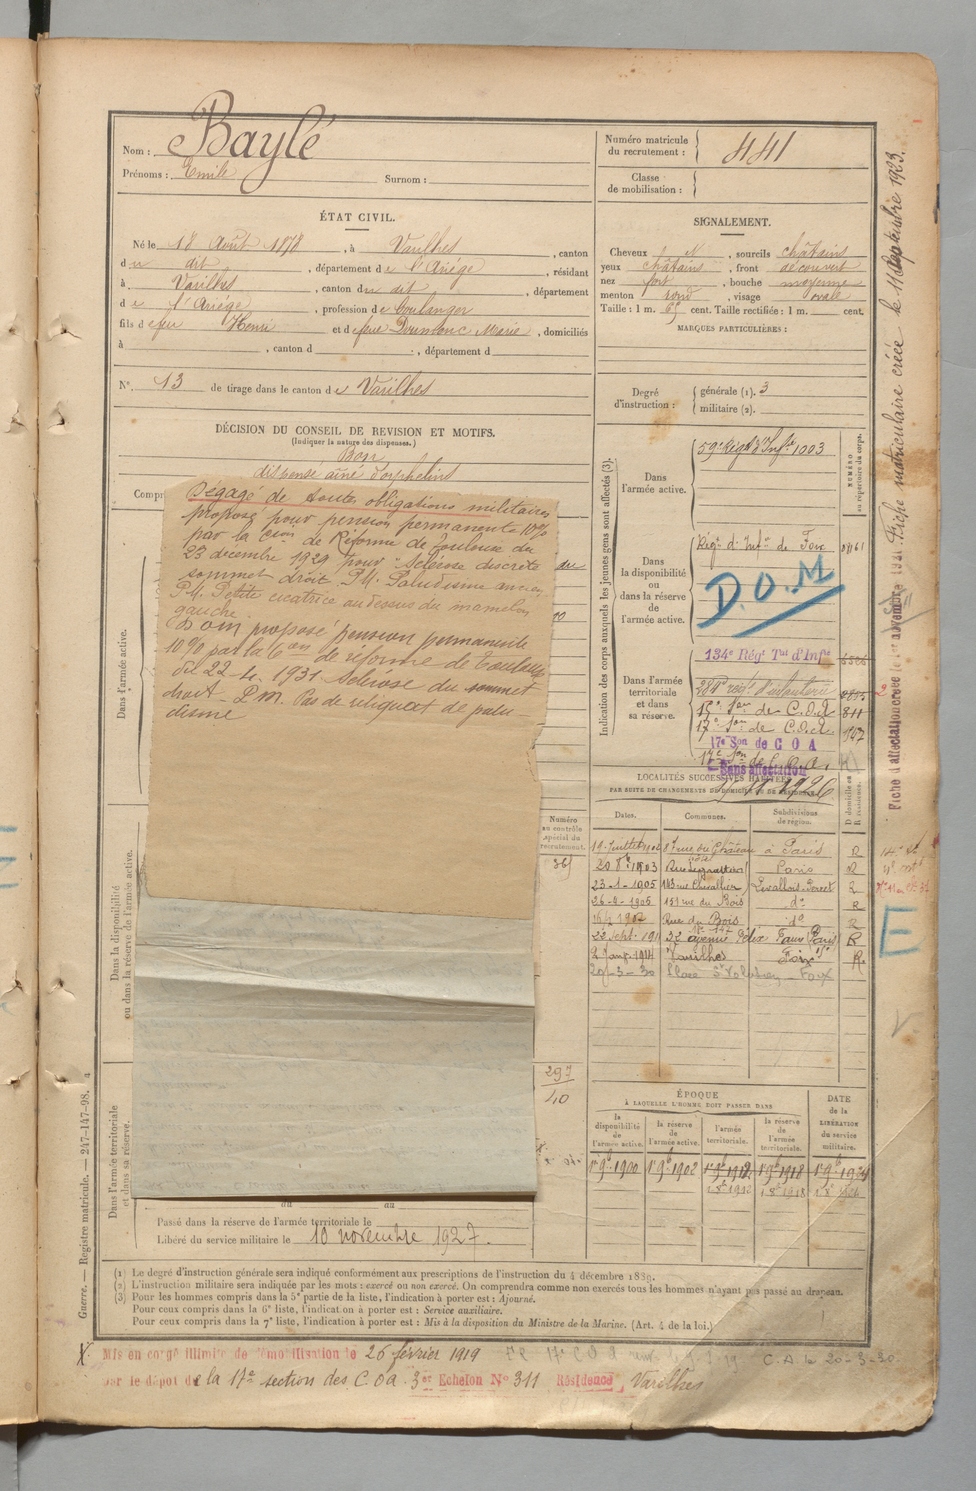 Nom : Baylé
Prénoms : Emile Surnom :
ÉTAT CIVIL.
Né le 18 Août 1878, à Varilhes, canton
du dit, département de l'Ariége, résidant
à Varilhes, canton du dit, département
de l'Ariége, profession de boulanger
fils de feu Henri et de feue Marie, domiciliés
à , canton d , département d
N°. 13 de tirage dans le canton de Varilhes
DÉCISION DU CONSEIL DE REVISION ET MOTIFS.
(Indiquer la nature des dispenses.)
Bon
dispensé aîné d'orphelins
Compri
Dégagé de toutes obligations militaires
proposé pour pension permanente 10%
par la Cion de Réforme de Toulouse du
23 décembre 1929 pour "Sclérose discrète
sommet droit. P.M. Paludisme ancien
P.M. Petite cicatrice au dessus du mamelon
gauche
D.O.M proposé pension permanente
10% par la 6e con de réforme de Toulouse
du 22-4-1931 Sclérose du sommet
droit - P.M. Pas de reliquat de palu-
disme
Dans l'armée active.
Dans la disponibilité
ou dans la réserve de l'armée active.
Dans l'armée territoriale
et dans sa réserve.
Numéro
au contrôle
spécial du
recrutement.
297
40
au au
Passé dans la réserve de l'armée territoriale le
Libéré du service militaire le 10 novembre 1927.
Numéro matricule
du recrutement : 441
Classe
de mobilisation :
SIGNALEMENT.
Cheveux , sourcils châtains
yeux châtains, front découvert
nez fort, bouche moyenne
menton rond, visage ovale
Taille : 1 m. 65 cent. Taille rectifiée : 1 m. cent.
MARQUES PARTICULIÈRES :
Degré
d'instruction :
générale (1). 3
militaire (2).
Indication des corps auxquels les jeunes gens sont affectés (3).
NUMÉRO
au répertoire du corps.
Dans
l'armée active.
59e Régt d'Infie 1003
Dans
la disponibilité
ou
dans la réserve
de
l'armée active.
Régt d'Infie de Foix
D.O.M
Dans l'armée
territoriale
et dans
sa réserve.
134e Régt Tal d'Infie
15e Son de C.O.A 811
17e Son de C.O.A. 147
17e Son de C O A
17e Son de C.O.A.
Sans affectation
LOCALITÉS SUCCESSIVES HABITÉES
PAR SUITE DE CHANGEMENTS DE DOMICILE OU DE RÉSIDENCE.
Dates. Communes. Subdivisions de région. D domicile ou R résidence.
87 rue du Château à Paris R
Paris R
23-1-1905 113 rue Chevallier Levallois-Perret R
26-2-1905 159 rue du Bois do R
Rue du Bois do R
22 Sept. 1911 32 avenue Félix Faure Paris R
2 Janv. 1914 Varilhes Foix R.
20-3-30 Place St Volusien - Foix
ÉPOQUE
À LAQUELLE L'HOMME DOIT PASSER DANS
la disponibilité de l'armée active.
la réserve de l'armée active.
l'armée territoriale.
la réserve de l'armée territoriale.
DATE de la LIBÉRATION du service militaire.
1er 9b 1900 1er 9b 1902 1er 9b 1912 1er 9b 1918 1er 9b 1924
(1) Le degré d'instruction générale sera indiqué conformément aux prescriptions de l'instruction du 4 décembre 1889.
(2) L'instruction militaire sera indiquée par les mots : exercé ou non exercé. On comprendra comme non exercés tous les hommes n'ayant pas passé au drapeau.
(3) Pour les hommes compris dans la 5e partie de la liste, l'indication à porter est : Ajourné.
Pour ceux compris dans la 6e liste, l'indication à porter est : Service auxiliaire.
Pour ceux compris dans la 7e liste, l'indication à porter est : Mis à la disposition du Ministre de la Marine. (Art. 4 de la loi.)
Mis en congé illimité de démobilisation le 26 février 1919
par le dépôt de la 17e section des C.O.A. 3er Echelon No 311 Résidence Varilhes
C.A. le 20-3-30.
Guerre. — Registre matricule. — 247-147-98.
Fiche matriculaire créée le 11 septembre 1923.
E